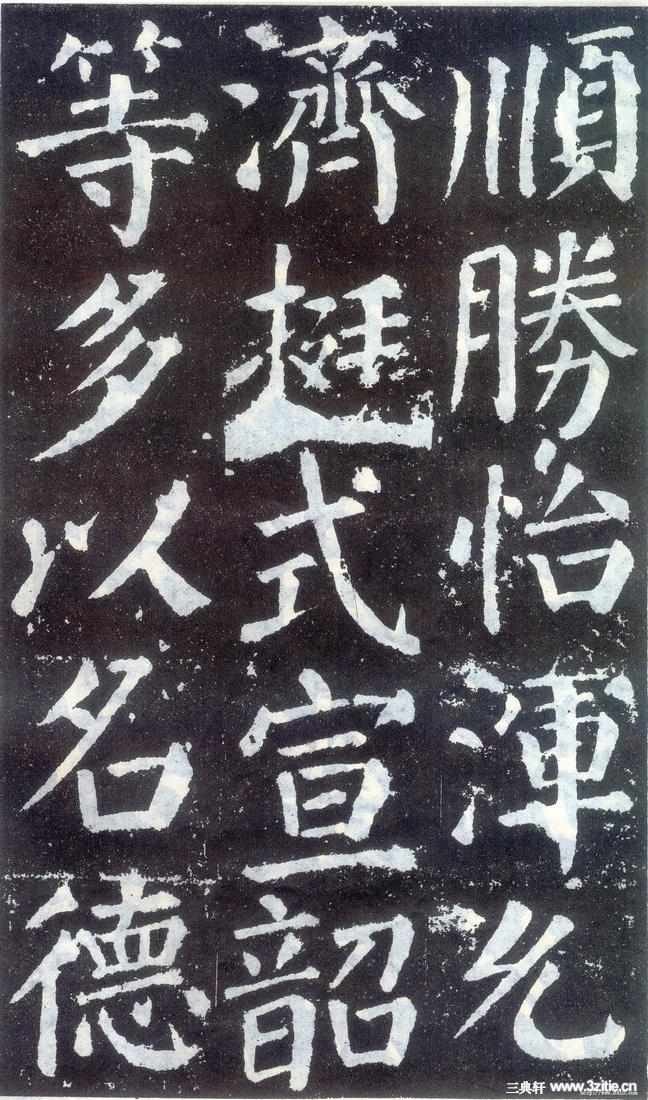 順勝怡渾允
濟挺式宣韶
等多以名德
三典轩 www.3zitie.cn